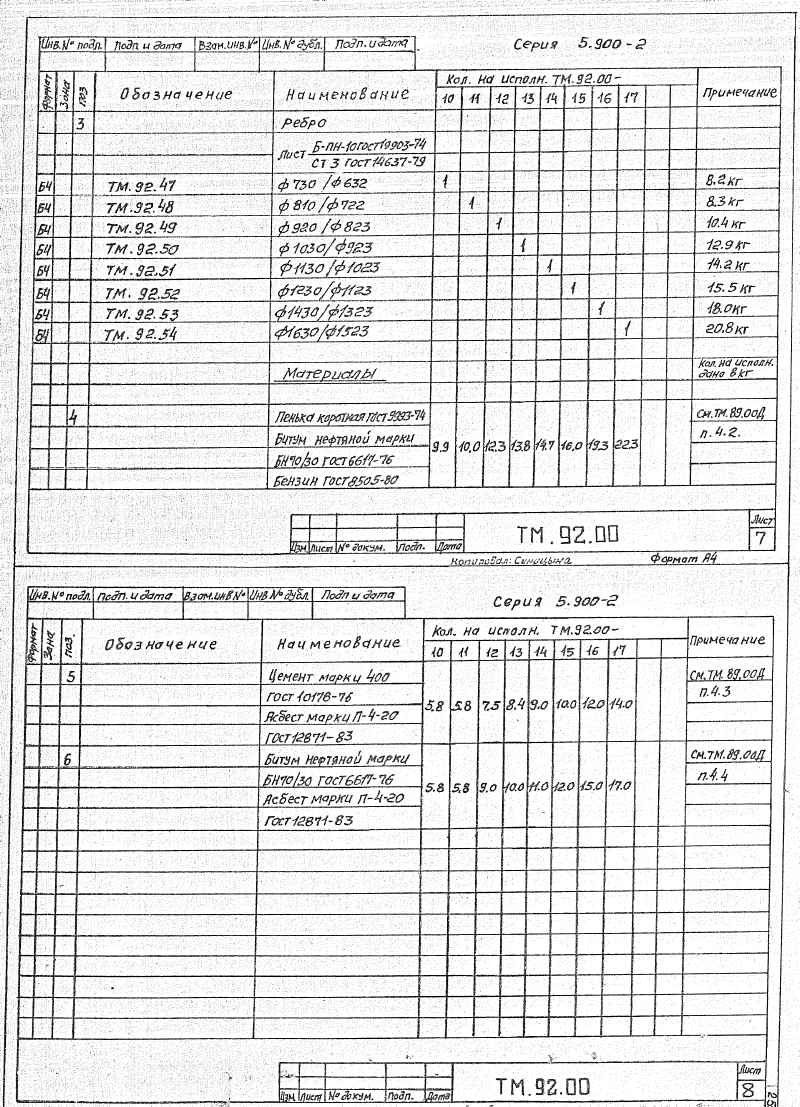 Инв.№ подл. Подп. и дата Взам.инв.№ Инв.№ дубл. Подп. и дата
Серия 5.900-2
Формат Зона Поз Обозначение Наименование Кол. на исполн. ТМ.92.00- Примечание
10 11 12 13 14 15 16 17
3 Ребро
Лист Б-ПН-10 ГОСТ19903-74
СТ 3 ГОСТ14637-79
БЧ ТМ.92.47 ф730/ф632 1 8.2 кг
БЧ ТМ.92.48 ф810/ф722 1 8.3 кг
БЧ ТМ.92.49 ф920/ф823 1 10.4 кг
БЧ ТМ.92.50 ф1030/ф923 1 12.9 кг
БЧ ТМ.92.51 ф1130/ф1023 1 14.2 кг
БЧ ТМ.92.52 ф1230/ф1123 1 15.5 кг
БЧ ТМ.92.53 ф1430/ф1323 1 18.0 кг
БЧ ТМ.92.54 ф1630/ф1523 1 20,8 кг
Материалы Кол. на исполн.
дано в кг
4 Пенька короткая ГОСТ 9993-74 См.ТМ.89.00Д
Битум нефтяной марки п.4.2.
9.9 10,0 12.3 13.8 14.7 16,0 19.3 22.3
БН70/30 ГОСТ 6617-76
Бензин ГОСТ 8505-80
Изм Лист № докум. Подп. Дата
ТМ.92.00
Лист
7
Копировал: Синицына Формат А4
Инв.№ подл. Подп. и дата Взам.инв№ Инв№ дубл. Подп и дата
Серия 5.900-2
Формат Зона Поз. Обозначение Наименование Кол. на исполн. ТМ.92.00- Примечание
10 11 12 13 14 15 16 17
5 Цемент марки 400 См.ТМ.89.00Д
ГОСТ 10178-76 п.4.3
5.8 5.8 7.5 8.4 9.0 10.0 12.0 14.0
Асбест марки П-4-20
ГОСТ 12871-83
6 Битум нефтяной марки См.ТМ.89.00Д
БН70/30 ГОСТ6617-76 п.4.4
5.8 5.8 9.0 10.0 11.0 12.0 15.0 17.0
Асбест марки П-4-20
ГОСТ 12871-83
Изм. Лист № докум. Подп. Дата
ТМ.92.00
Лист
8
25